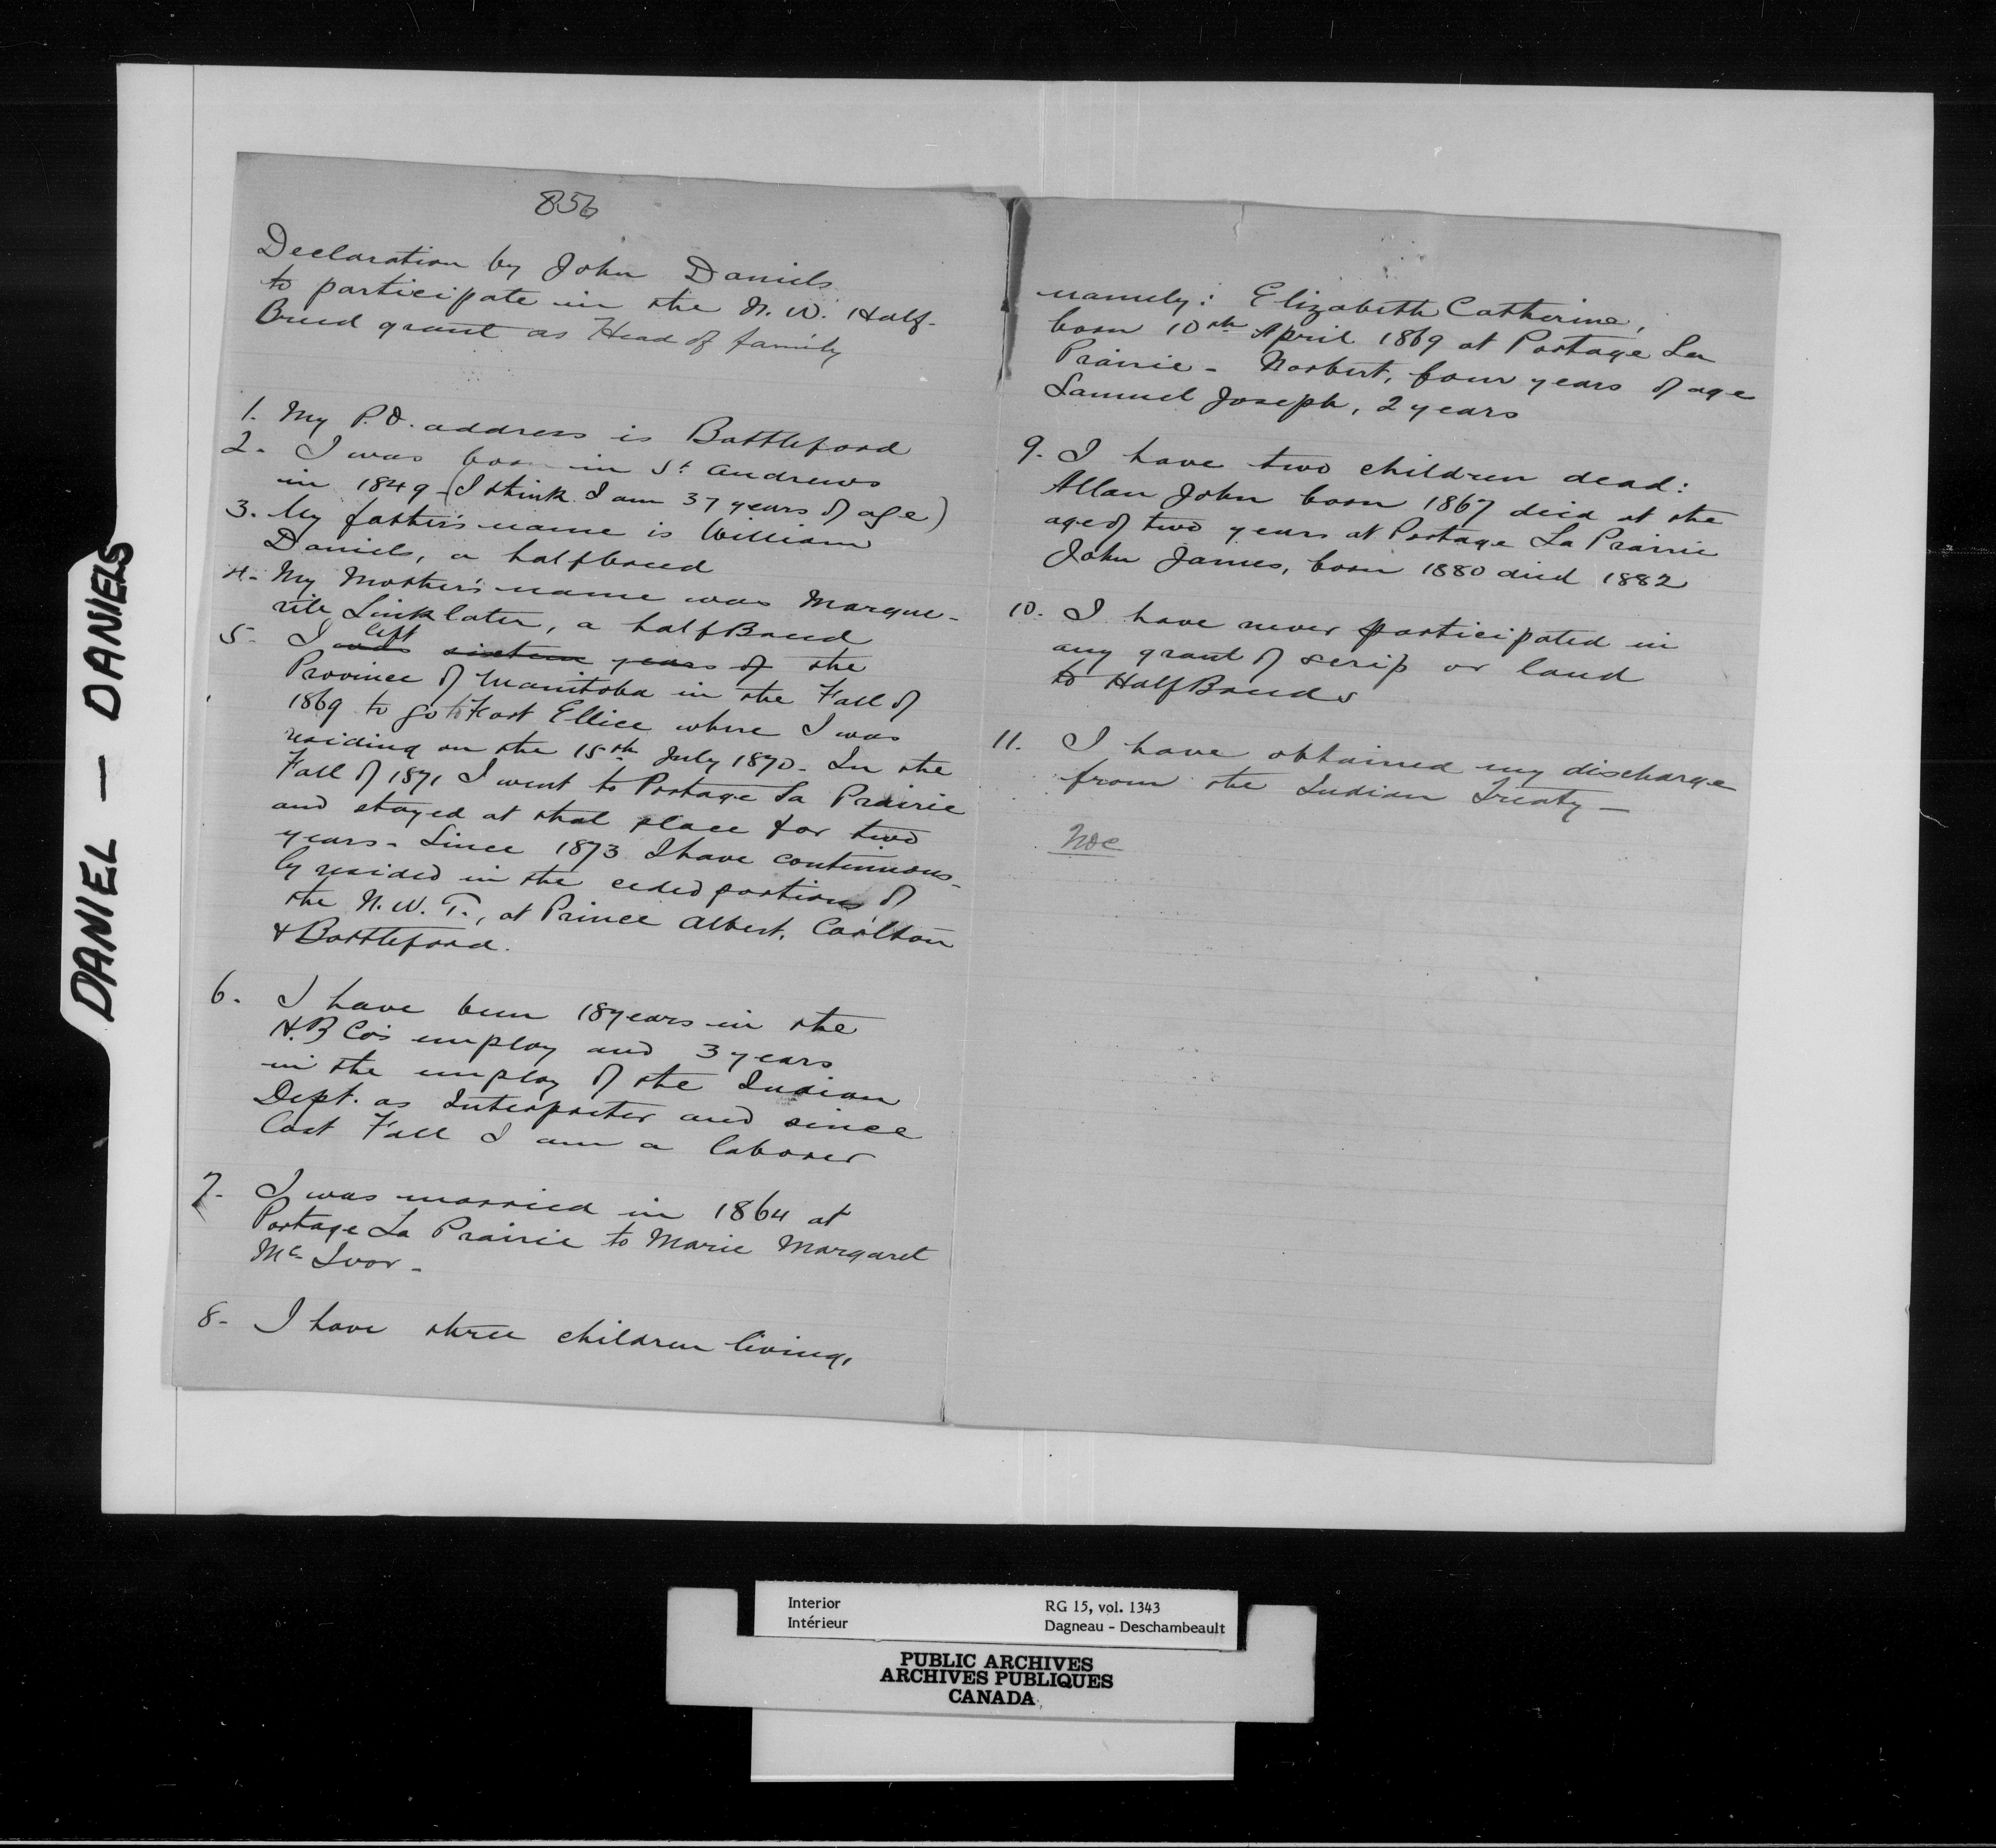 DANIEL — DANIELS
856
Declaration by John Daniels
to participate in the N. W. Half-
Breed grant as Head of family
1. My P.O. address is Battleford
2. I was born in St Andrews
in 1849 - (I think I am 37 years of age)
3. My father's name is William
Daniels, a halfbreed
4. My Mother's name was Margue-
rite Linklater, a halfBreed
5. I was left sixteen years of the
Province of Manitoba in the Fall of
1869 to go to Fort Ellice where I was
residing on the 15th July 1870 - In the
Fall of 1871 I went to Portage La Prairie
and stayed at that place for two
years - Since 1873 I have continuous-
ly resided in the ceded portions of
the N. W. T., at Prince Albert, Carlton
& Battleford.
6. I have been 18 years in the
H.B Co's employ and 3 years
in the employ of the Indian
Dept. as Interpreter and since
last Fall I am a laborer
7- I was married in 1864 at
Portage La Prairie to Marie Margaret
Mc Ivor -
8- I have three children living,
namely: Elizabeth Catherine,
born 10th April 1869 at Portage La
Prairie - Norbert, four years of age
Samuel Joseph, 2 years
9. I have two children dead:
Allan John born 1867 died at the
age of two years at Portage La Prairie
John James, born 1880 died 1882
10. I have never participated in
any grant of scrip or land
to HalfBreeds
11. I have obtained my discharge
from the Indian Treaty -
Interior
Intérieur
RG 15, vol. 1343
Dagneau - Deschambeault
PUBLIC ARCHIVES
ARCHIVES PUBLIQUES
CANADA